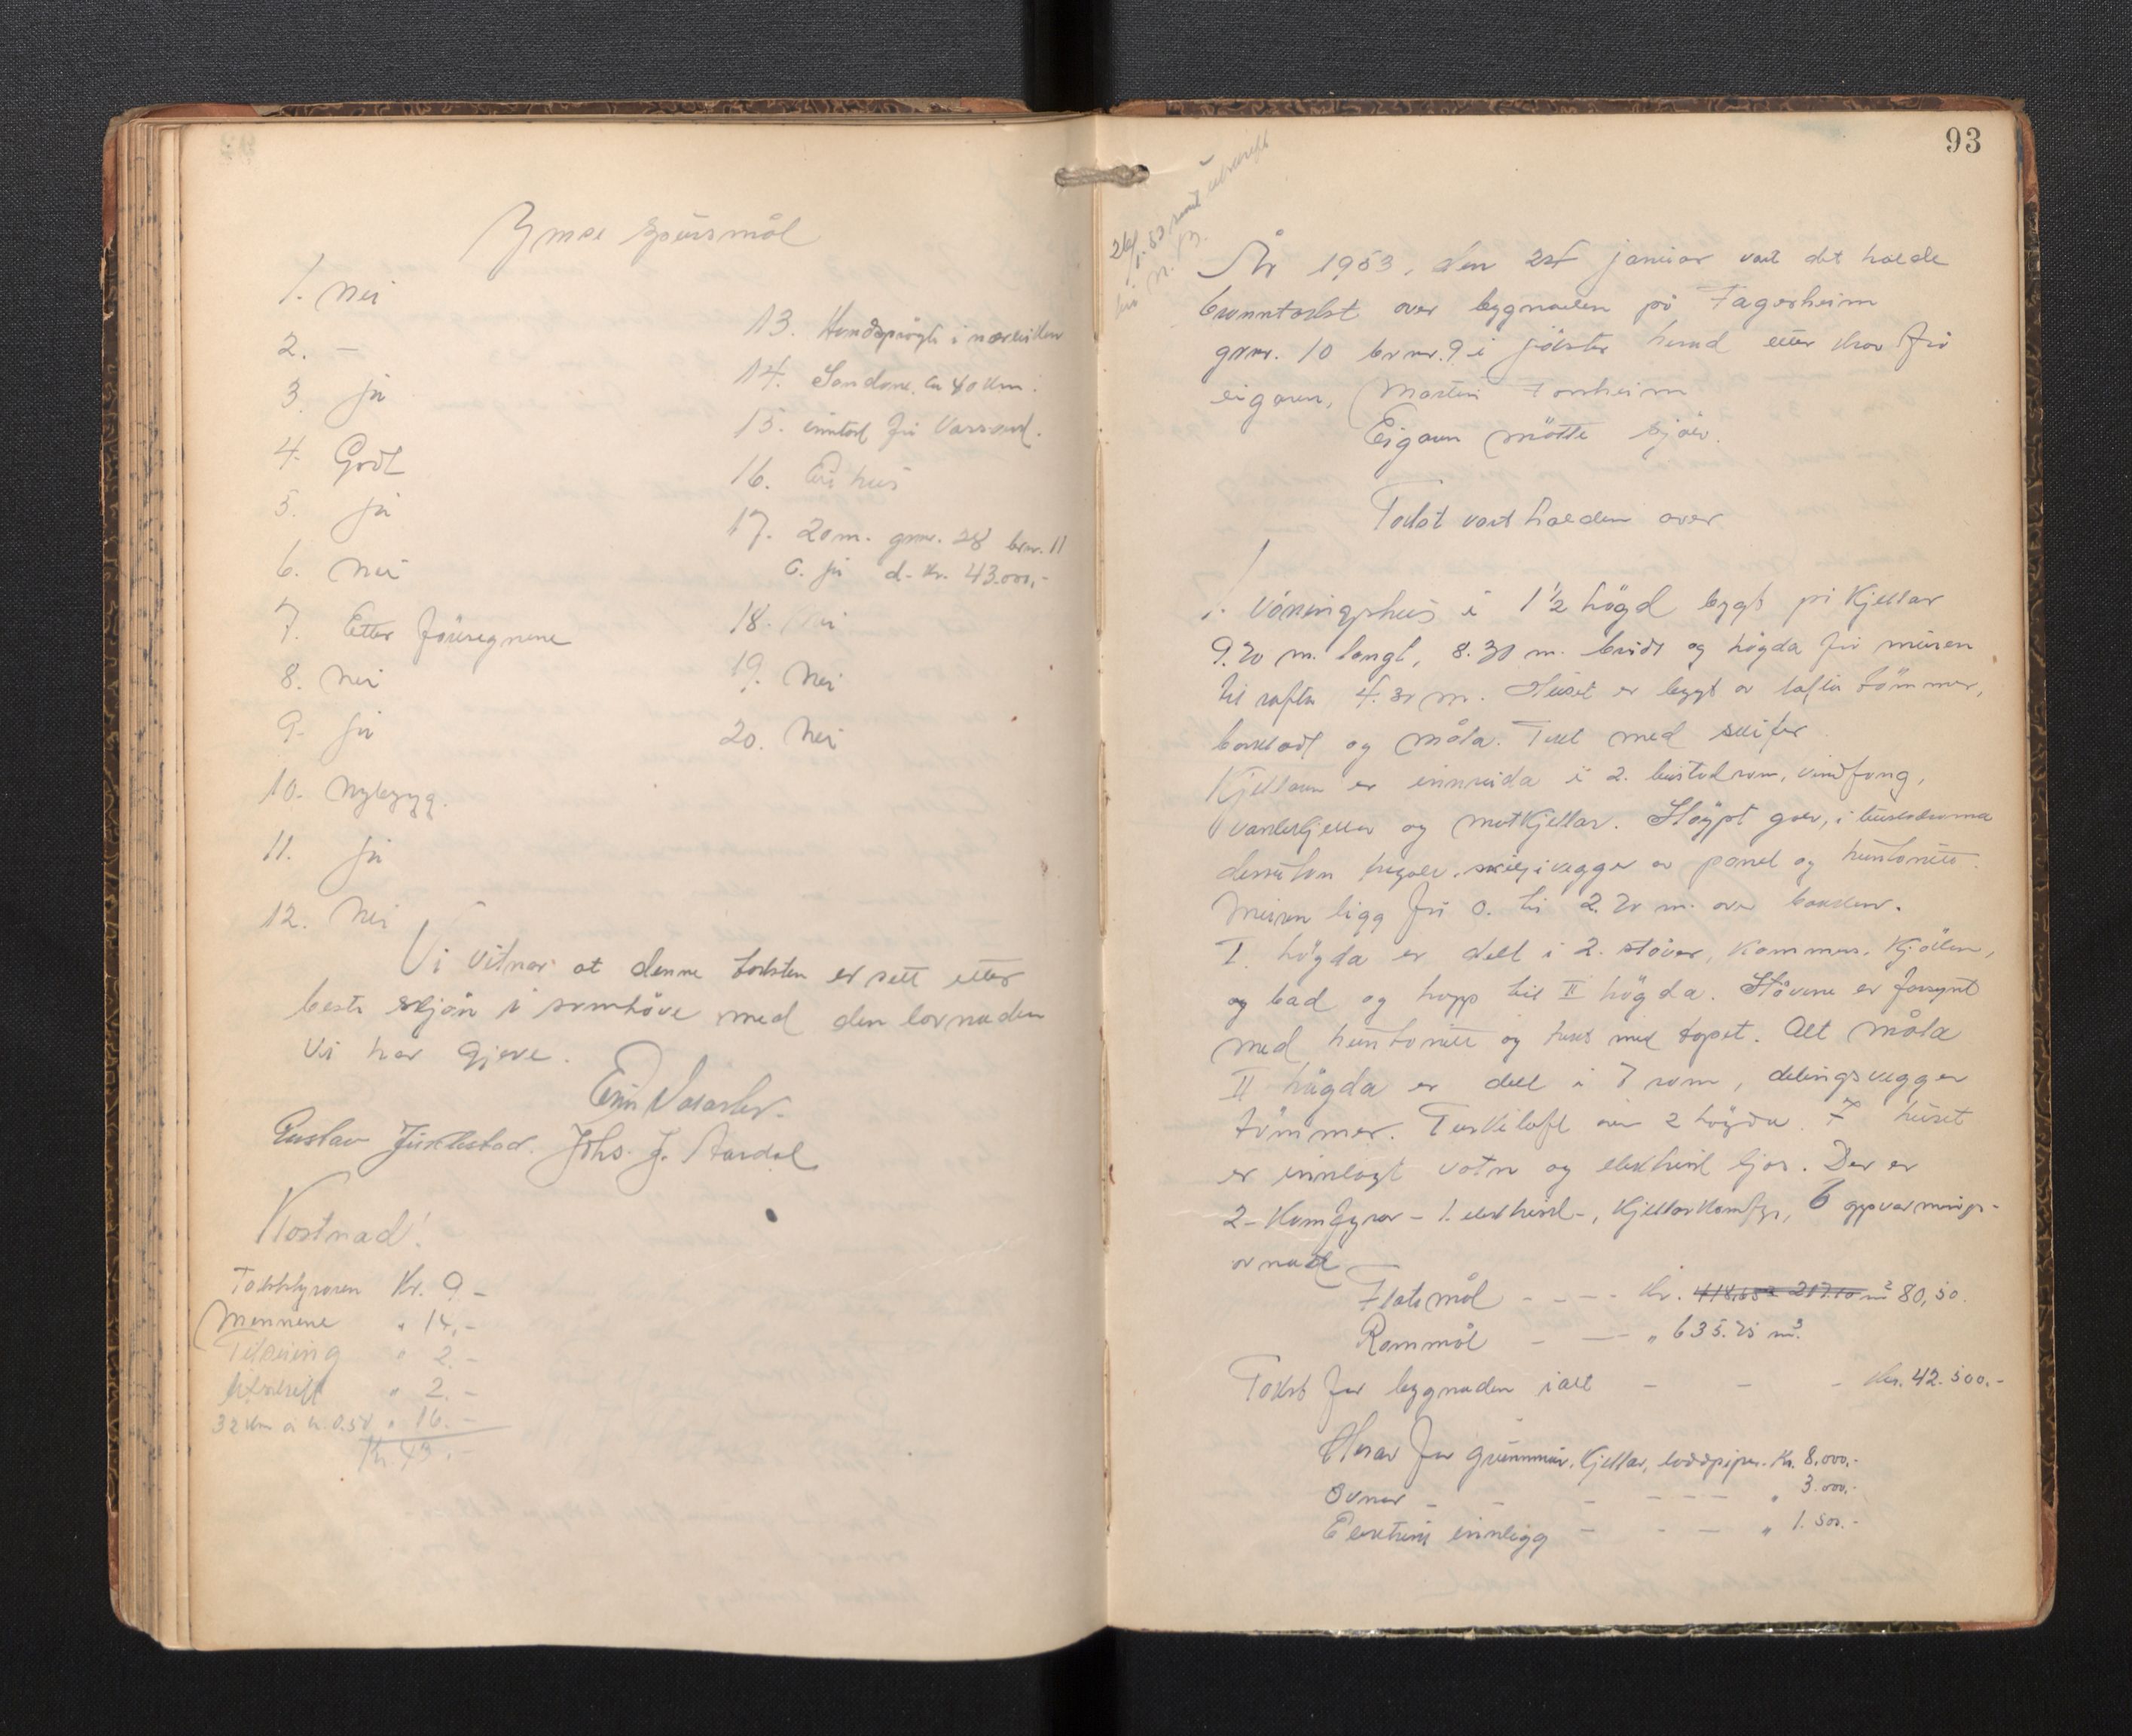 Ymse spursmål
1. Nei
2. —
3. ja
4. Godt
5. ja
6. Nei
7. Etter föresegnene
8. Nei
9. ja
10. Nybygg.
11. ja
12. Nei
13. Handspröyte i nærleiken
14. Sandane. ca 40 km.
15. inntak frå
16. Eit hus
17. 20 m. gnr. 28 brnr. 11
c. ja d. kr. 43.000,-
18. Nei
19. Nei
20. Nei
Vi vitnar at denne taksten er sett etter
beste skjön i samhöve med den lovnaden
Vi har gjeve.
Gustav Johs. J. Aardal
Kostnad!
Takststyraren Kr. 9.-
Mennene " 14,-
" 2.-
Utskrift " 2.-
32 km à kr. 0.50 " 16.-
Kr. 43.-
93
26/1.53 sendt utskrift
År 1953, den 24 januar vart det halde
branntakst over bygnaden på Fagerheim
gnr. 10 brnr. 9 i Jölster herad etter krav frå
eigaren, Martin
Eigaren mötte sjölv.
Takst vart halden over
1. Våningshus i 1 ½ högd bygt på kjellar
9.20 m. langt, 8.30 m. breidt og högda frå muren
til raftn 4.30 m. Huset er bygt av lafta tömmer,
bordkledt og måla. Tekt med skifer
Kjellaren er innreida i 2. bustadrom, vindfang,
vaskekjellar og matkjellar. Stöypt golv, i bustadromma
dessutan tregolv. skiljevegger av panel og huntonitt.
Muren ligg frå 0. til 2.20 m. over bakken.
I högda er delt i 2. stover, kammers, kjöken,
og bad og trapp til II högda. Stövene er forsynt
med huntonitt og trekt med tapet. Alt måla
II högda er delt i 7 rom, delingsvegger
tömmer. Turkeloft over 2 högda. I huset
er innlagt vatn og elektrisk ljos. Der er
2 - Komfyrar - 1. elektrisk -, kjellarkomfyr, 6 oppvarmings-
ovnar.
Flatemål - - - - Kr. 80,50.
Rommål - — " 635.25 m³.
Takst for bygnaden i alt - - - Kr. 42.500.-
Herav for grunnmur, kjellar, loddpipe. Kr. 8.000.-
Ovnar - - - - - - " 3.000.-
Elektrisk innlegg - - — " 1.500.-